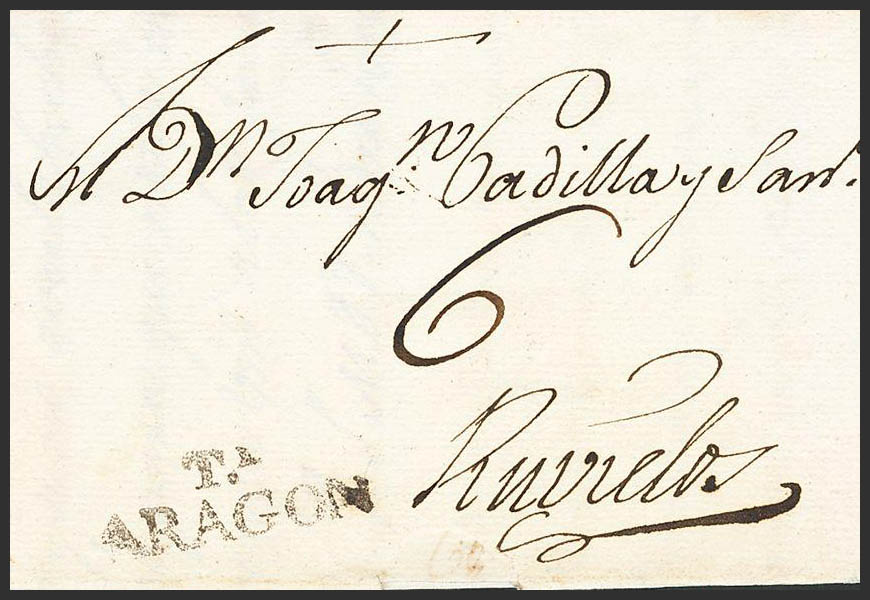 A Dn Joaq.n Badilla y San.
6
Ruvielos
T.A
ARAGON